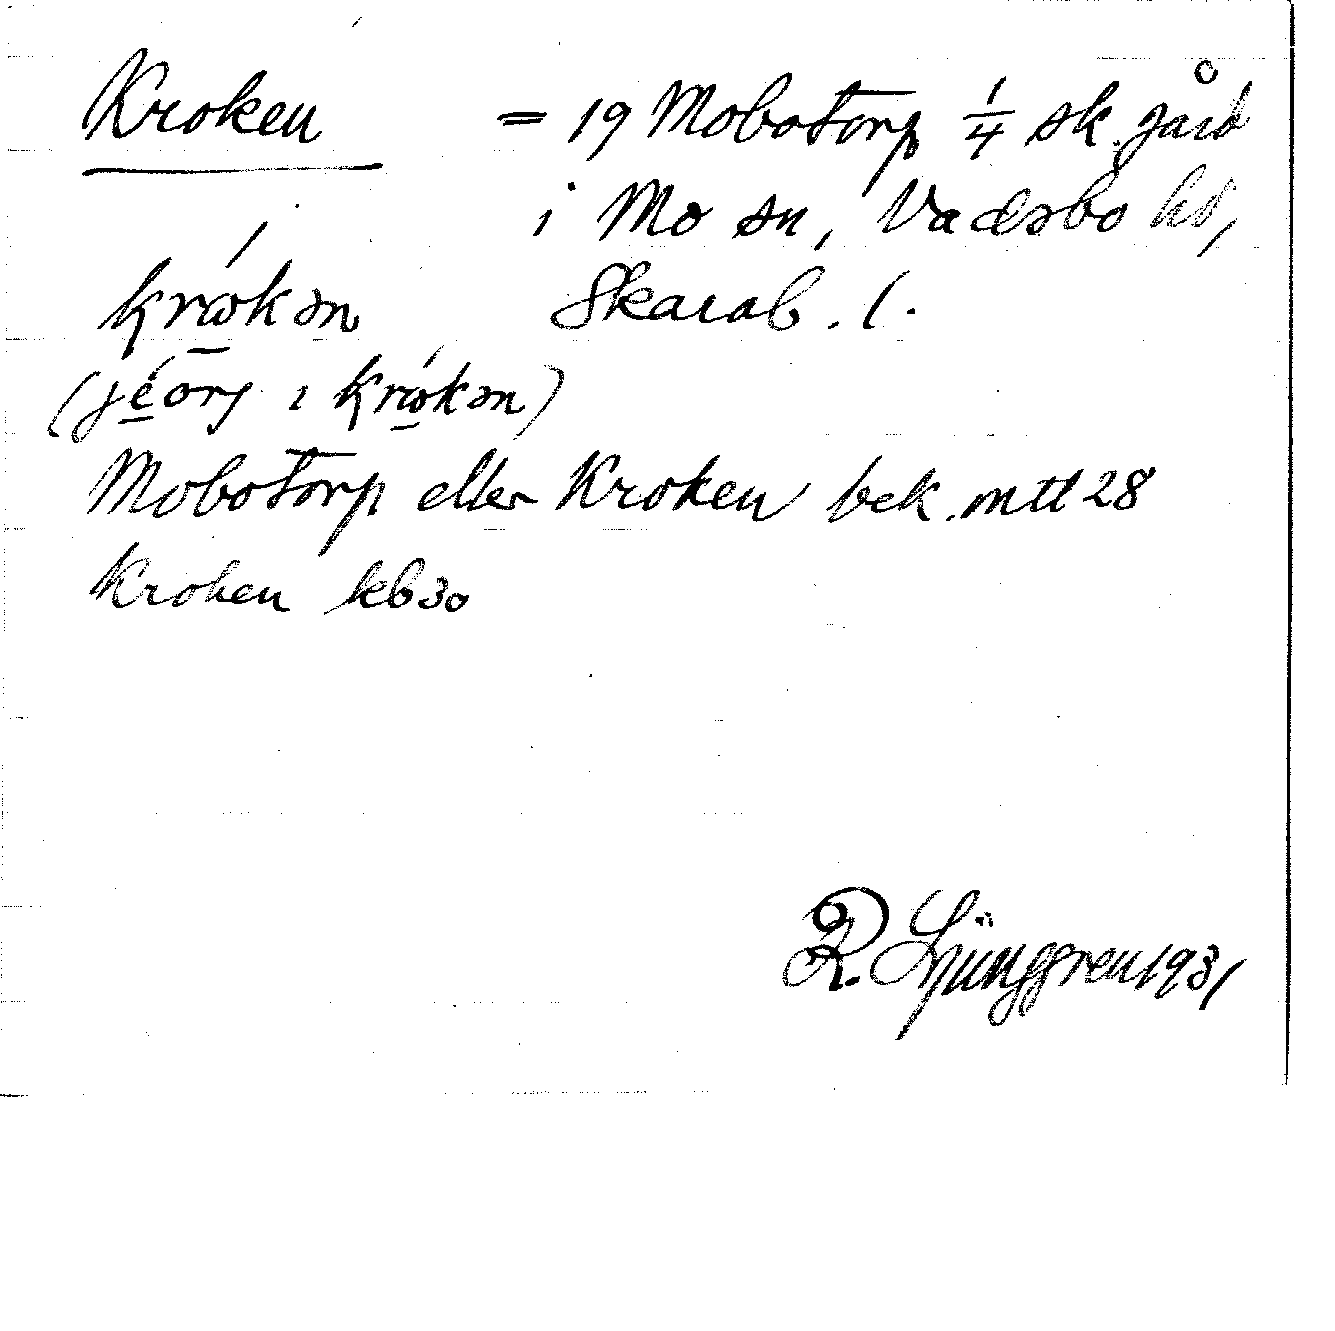 Kroken = 19 Mobotorp 1/4 sk. gård
i Mo sn, Vadsbo hd,
Skarab. l.
krɷ́kən
(jéorj ı krɷ́kən)
Mobotorp eller Kroken bek. mtl 28
Kroken kb 30
R. Ljunggren 1931